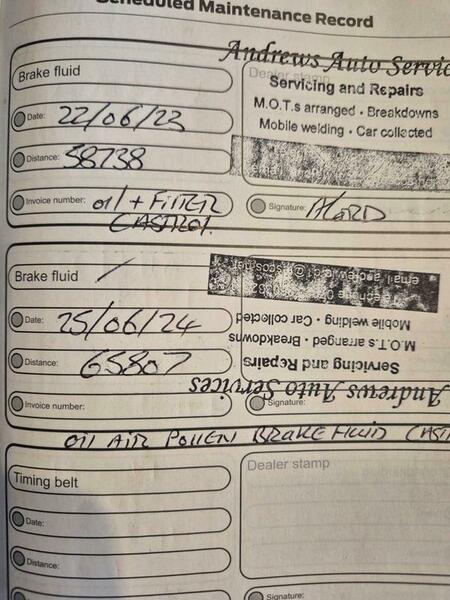 Scheduled Maintenance Record
Andrews Auto Servic
Brake fluid
Dealer stamp
Servicing and Repairs
M.O.T.s arranged • Breakdowns
Mobile welding • Car collected
Date: 22/06/23
Distance: 58738
Invoice number: oil + FilTER
CASTROL
Signature:
Brake fluid
Date: 25/06/24
Distance: 65807
Mobile welding • Car collected
M.O.T.s arranged • Breakdowns
Servicing and Repairs
Andrews Auto Services
Invoice number:
Signature:
OIL AIR POLLEN BRAKE FLUID CAST
Timing belt
Dealer stamp
Date:
Distance:
Signature: